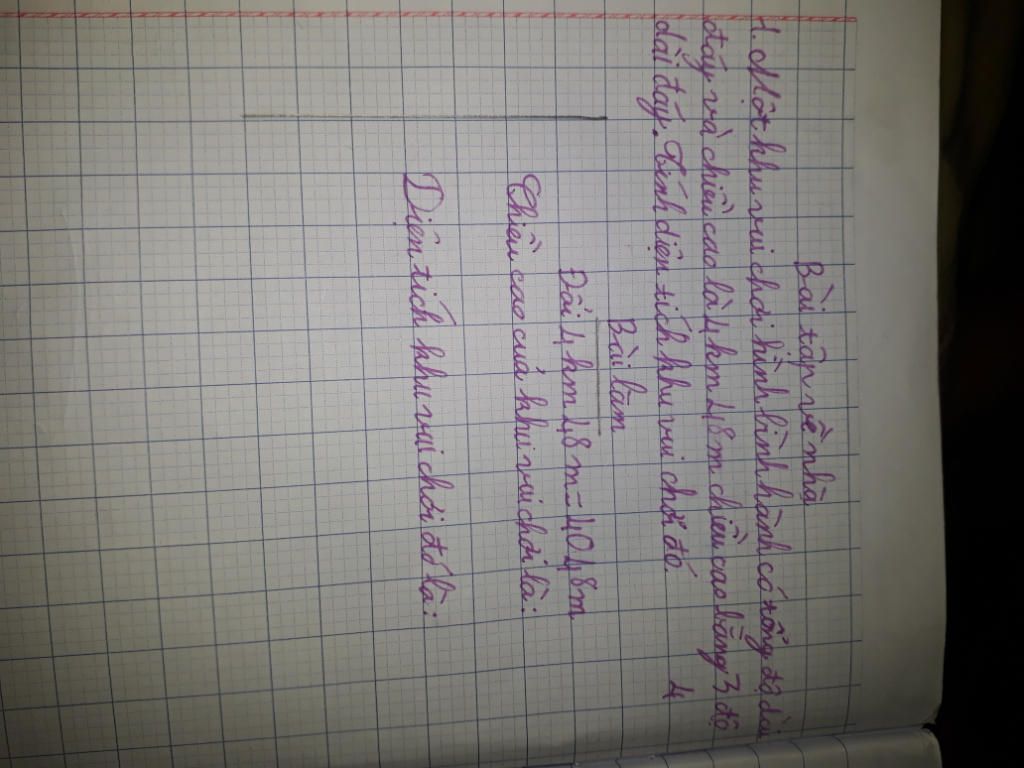 Bài tập về nhà
1. Một khu vui chơi hình bình hành có tổng độ dài
đáy và chiều cao là 4km 48m chiều cao bằng 3/4 độ
dài đáy. Tính diện tích khu vui chơi đó.
Bài làm
Đổi 4km 48m = 4048m
Chiều cao của khu vui chơi là:
Diện tích khu vui chơi đó là: